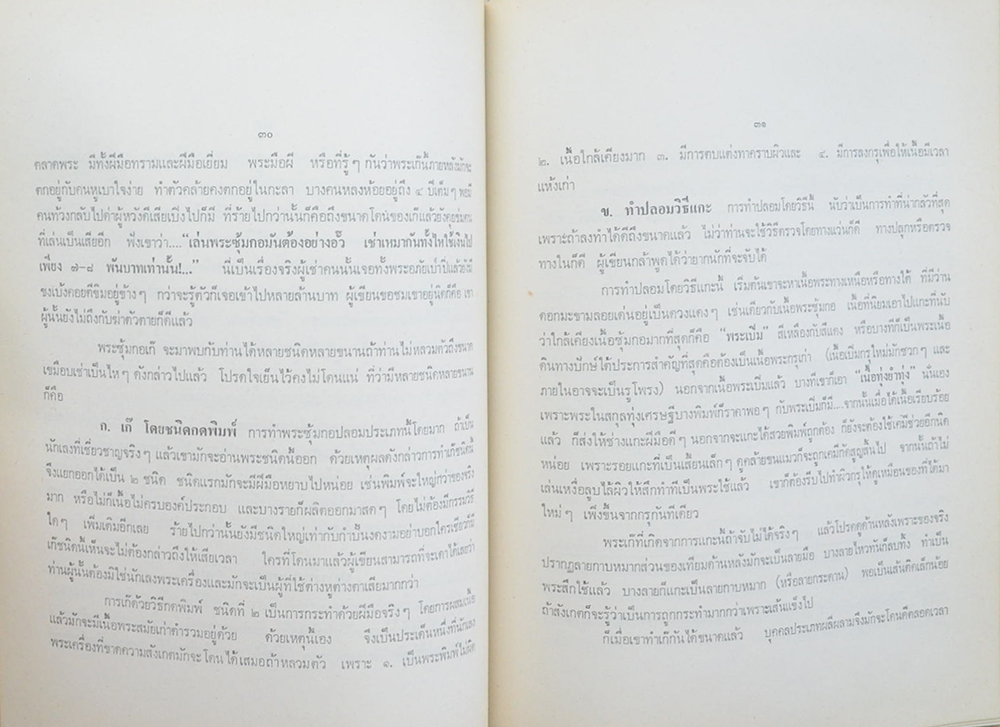 ๓๐
ตลาดพระ มีทั้งฝีมือทรามและฝีมือเยี่ยม พระมือผี หรือที่รู้ๆ กันว่าพระเก๊นั้ภายหลังมักจะ
ตกอยู่กับคนหูเบาใจง่าย ทำตัวคล้ายคงตกอยู่ในกะลา บางคนหลงห้อยอยู่ถึง ๔ ปีเต็มๆ พอมี
คนท้วงกลับไปด่าผู้หวังดีเสียเปิงไปก็มี ที่ร้ายไปกว่านั้นก็คือถึงขนาดโดนของเก๊แล้วยังคุย
ที่เล่นเป็นเสียอีก ฟังเขาว่า...."เล่นพระซุ้มกอมันต้องอย่างอั๊ว เช่าเหมากันทั้งไหใช้เงินไป
เพียง ๗-๘ พันบาทเท่านั้น!..." นี่เป็นเรื่องจริงผู้เช่าคนนั้นเจอทั้งพระ
ของเบ้งคอยคีขิมอยู่ข้างๆ กว่าจะรู้ตัวก็เจอเข้าไปหลายล้านบาท ผู้เขียนขอชมเขาอยู่นิดก็คือ เขา
ผู้นั้นยังไม่ถึงกับฆ่าตัวตายก็ดีแล้ว
พระซุ้มกอเก๊ จะมาพบกับท่านได้หลายชนิดหลายขนานถ้าท่านไม่หลวมตัวถึงขนาด
เขมือบเช่าเป็นไหๆ ดังกล่าวไปแล้ว โปรดใจเย็นไว้คงไม่โดนแน่ ที่ว่ามีหลายชนิดหลายขนาน
ก็คือ
ก. เก๊ โดยชนิดกดพิมพ์ การทำพระซุ้มกอปลอมประเภทนี้โดยมาก ถ้าเป็น
นักเลงที่เชี่ยวชาญจริงๆ แล้วเขามักจะอ่านพระชนิดนี้ออก ด้วยเหตุผลดังกล่าวการทำเก๊ชนิดนี้
จึงแยกออกได้เป็น ๒ ชนิด ชนิดแรกมักจะมีฝีมือหยาบไปหน่อย เช่นพิมพ์จะใหญ่กว่าของจริง
มาก หรือไม่ก็เนื้อไม่ครบองค์ประกอบ และบางรายก็ผลิตออกมาสดๆ โดยไม่ต้องมีกรรมวิธี
ใดๆ เพิ่มเติมอีกเลย ร้ายไปกว่านั้นยังมีชนิดใหญ่เท่ากำปั้นงดงามอย่าบอกใครเชียวก็มี
เก๊ชนิดนี้เห็นจะไม่ต้องกล่าวถึงให้เสียเวลา ใครที่โดนมาแล้วผู้เขียนสามารถที่จะเดาได้เลยว่า
ท่านผู้นั้นต้องมิใช่นักเลงพระเครื่องและมักจะเป็นผู้ที่ใช้ต่างหูต่างตาเสียมากกว่า
การเก๊ด้วยวิธีกดพิมพ์ ชนิดที่ ๒ เป็นการกระทำด้วยฝีมือจริงๆ โดยการผสมเนื้อ
แล้วมักจะมีเนื้อพระสมัยเก่าตำรวมอยู่ด้วย ด้วยเหตุนี้เอง จึงเป็นประเด็นหนึ่งที่นักเลง
พระเครื่องที่ขาดความสังเกตมักจะโดนได้เสมอถ้าหลวมตัว เพราะ ๑. เป็นพระพิมพ์ไม่ผิด
๓๑
๒. เนื้อใกล้เคียงมาก ๓. มีการตบแต่งทาคราบผิวและ ๔. มีการลงกรุเพื่อให้เนื้อมีเวลา
แห้งเก่า
ข. ทำปลอมวิธีแกะ การทำปลอมโดยวิธีนี้ นับว่าเป็นการทำที่น่ากลัวที่สุด
เพราะถ้าลงทำได้ดีถึงขนาดแล้ว ไม่ว่าท่านจะใช้วิธีตรวจโดยทางแว่นก็ดี ทางปลุกหรือตรวจ
ทางในก็ดี ผู้เขียนกล้าพูดได้ว่ายากนักที่จะจับได้
การทำปลอมโดยวิธีแกะนี้ เริ่มต้นเขาจะหาเนื้อพระทางเหนือหรือทางใต้ ที่มีว่าน
ดอกมะขามลอยเด่นอยู่เป็นดวงแดงๆ เช่นเดียวกับเนื้อพระซุ้มกอ เนื้อที่นิยมเอาไปแกะที่นับ
ว่าใกล้เคียงเนื้อซุ้มกอมากที่สุดก็คือ "พระเปิม" สีเหลืองกับสีแดง หรือบางทีก็เป็นพระเนื้อ
ดินทางปักษ์ใต้ประการสำคัญที่สุดคือต้องเป็นเนื้อพระกรุเก่า (เนื้อเปิมกรุใหม่มักชวกๆ และ
ภายในอาจจะเป็นรูโพรง) นอกจากเนื้อพระเปิมแล้ว บางทีเขาก็เอา "เนื้อทุ่งยำทุ่ง" นั่นเอง
เพราะพระในสกุลทุ่งเศรษฐีบางพิมพ์ก็ราคาพอๆ กับพระเปิมก็มี....จากนั้นเมื่อได้เนื้อเรียบร้อย
แล้ว ก็ส่งให้ช่างแกะฝีมือดีๆ นอกจากจะแกะได้สวยพิมพ์ถูกต้อง ก็ยังจะต้องใช้เคมีช่วยอีกนิด
หน่อย เพราะรอยแกะที่เป็นเสี้ยนเล็กๆ ดูคล้ายขนแมวก็จะถูกเคมีกัดสูญสิ้นไป จากนั้นถ้าไม่
เล่นเหงื่อลูบไล้ผิวให้สึกทำทีเป็นพระใช้แล้ว เขาก็ต้องรีบไปทำผิวกรุให้ดูเหมือนของที่ได้มา
ใหม่ๆ เพิ่งขึ้นจากกรุกันทีเดียว
พระเก๊ที่เกิดจากการแกะนี้ถ้าจับไม่ได้จริงๆ แล้วโปรดดูด้านหลังเพราะของจริง
ปรากฏลายกาบหมากส่วนของเทียมด้านหลังมักจะเป็นลายมือ บางลายไหวทันก็ลบทิ้ง ทำเป็น
พระสึกใช้แล้ว บางลายก็แกะเป็นลายกาบหมาก (หรือลายกระดาน) พอเป็นเส้นคิดเล็กน้อย
ถ้าสังเกตก็จะรู้ว่าเป็นการถูกกระทำมากกว่าเพราะเส้นแข็งไป
ก็เมื่อเขาทำเก๊กันได้ขนาดแล้ว บุคคลประเภทผลีผลามจึงมักจะโดนดีตลอดเวลา